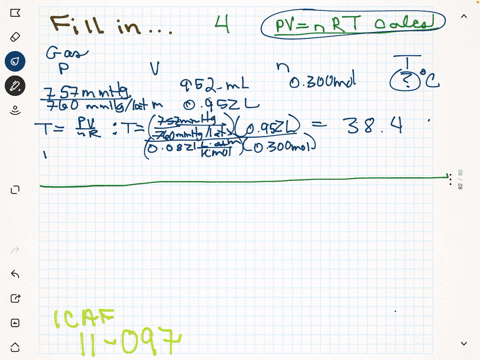 Fill in... 4 PV=nRT Calcs
Gas
P V n T
757 mmHg 952 mL 0.300mol ? °C
760 mmHg/1atm 0.952L
T = PV/nR : T = (757mmHg/760mmHg/1atm)(0.952L) = 38.4
(0.0821 L·atm/K·mol)(0.300mol)
ICAF
11-097